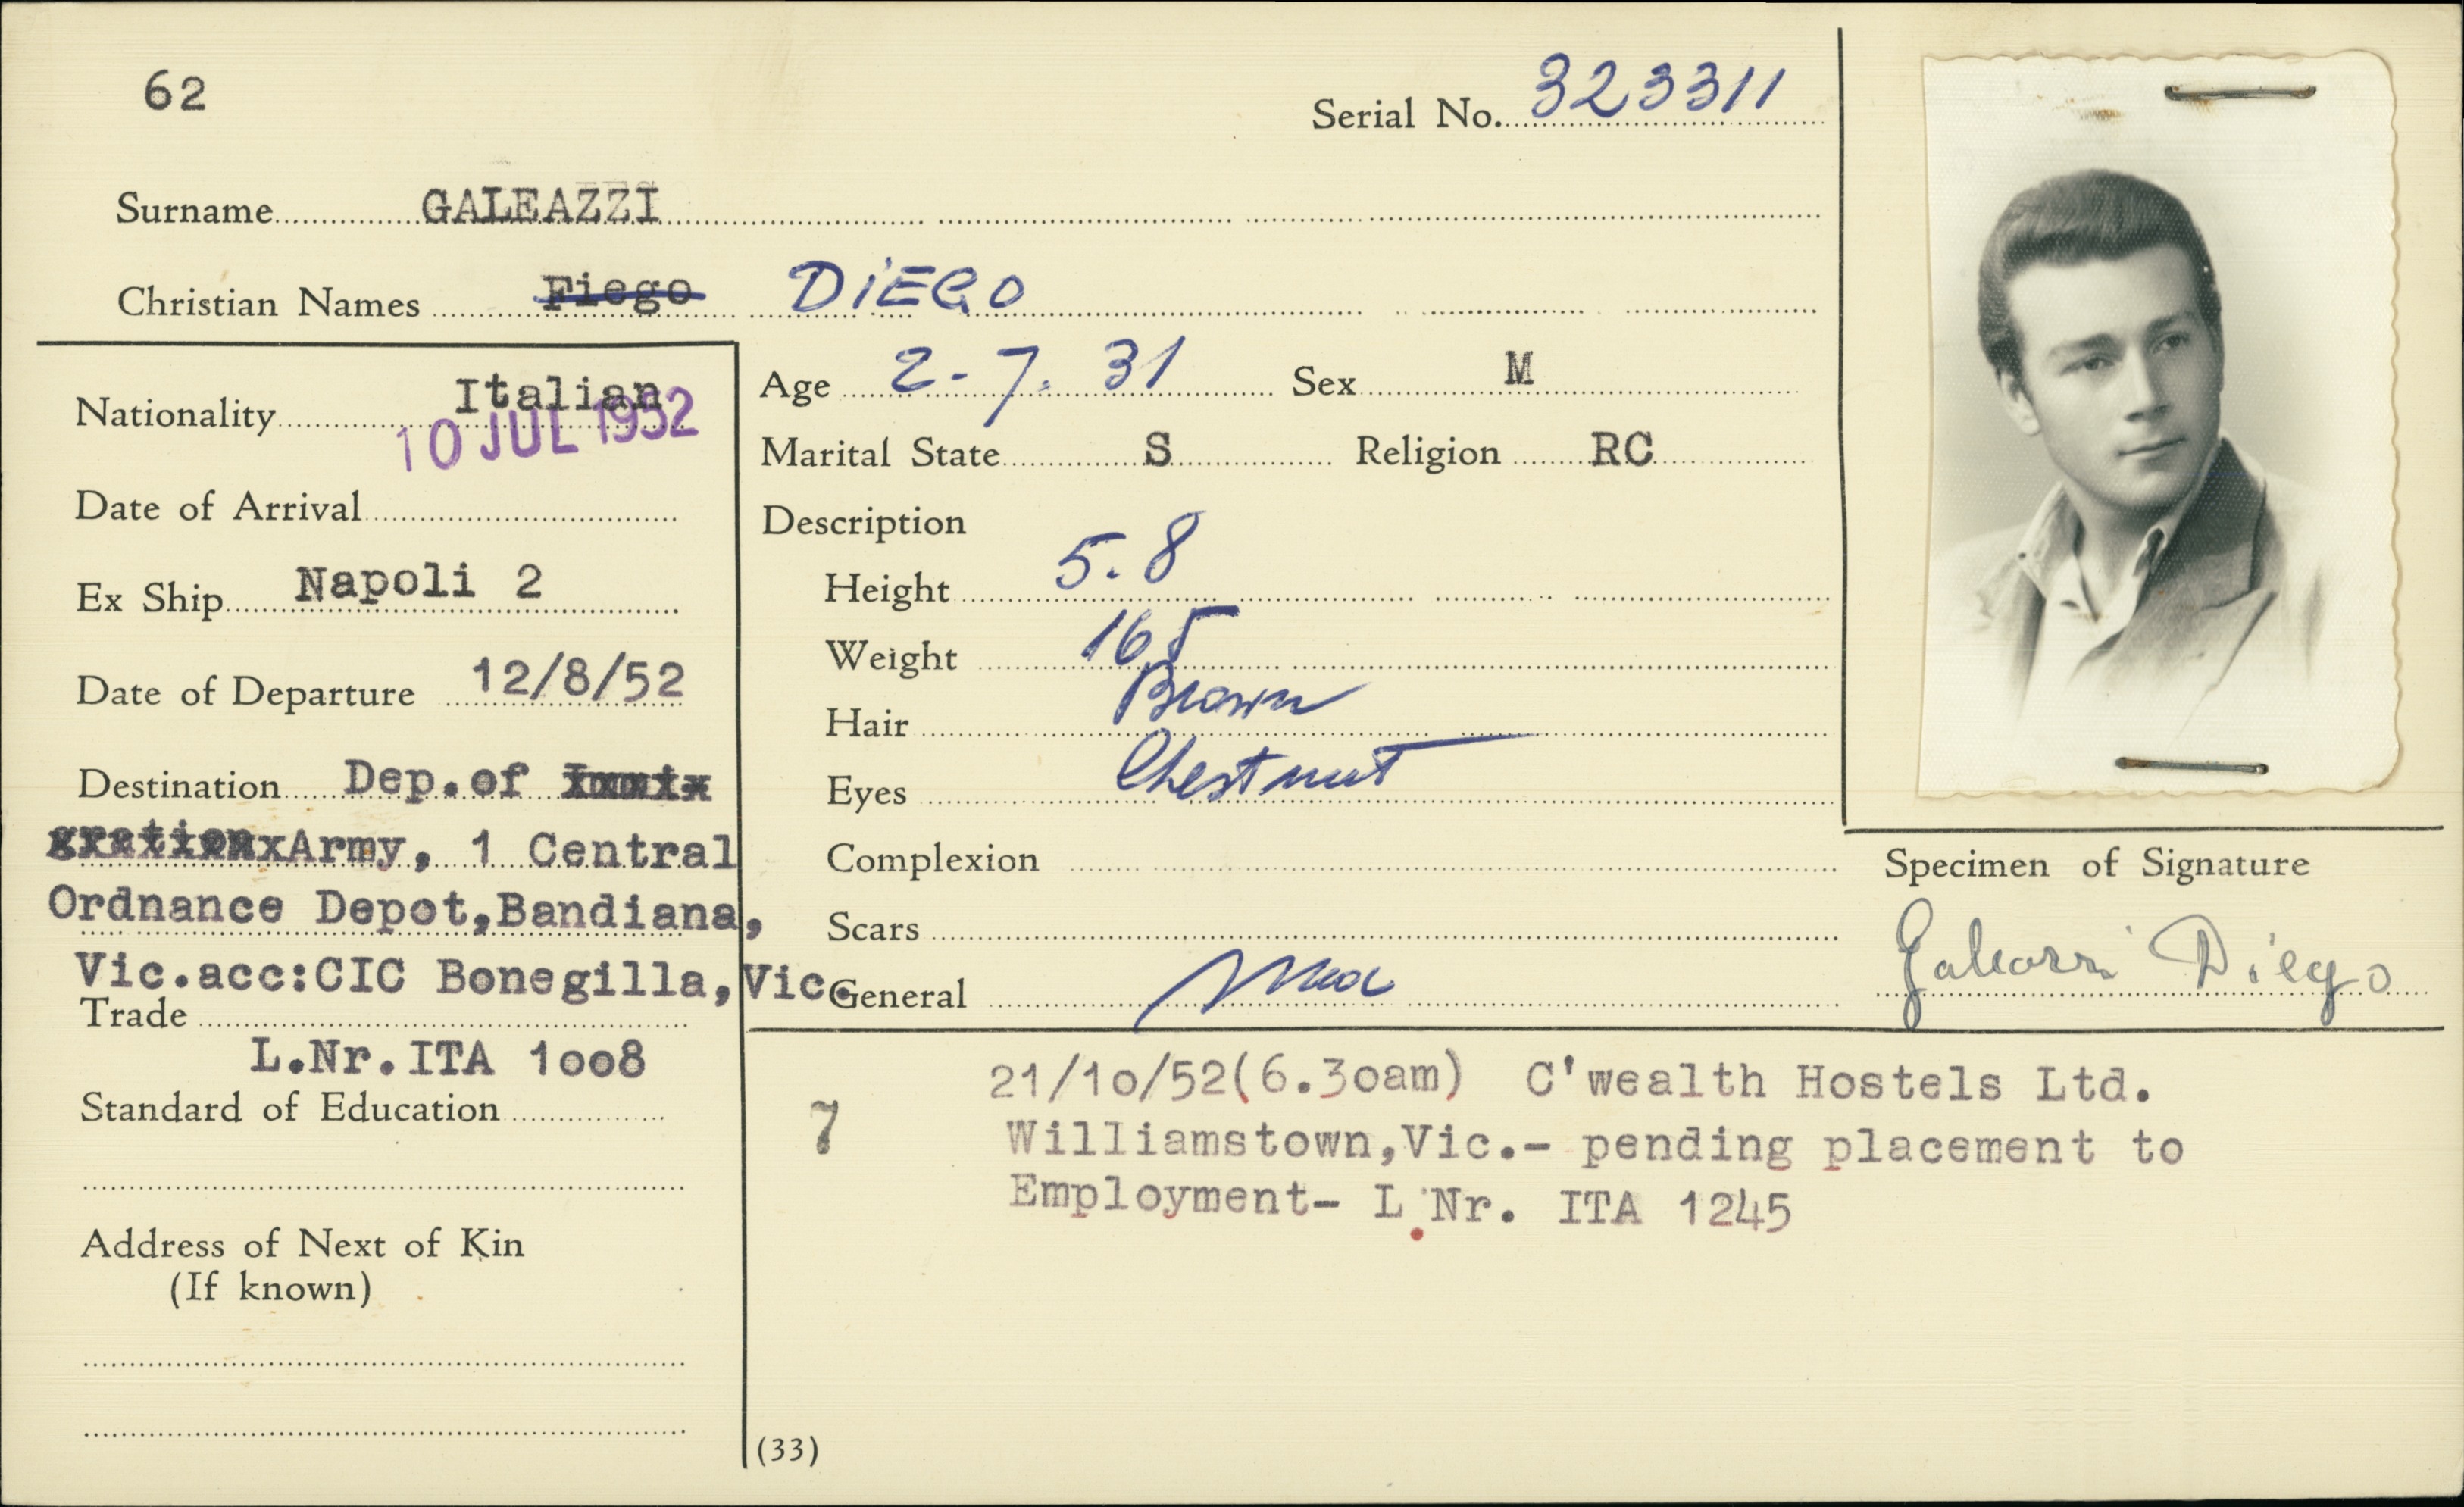 62
Serial No. 323311
Surname GALEAZZI
Christian Names Fiego DiEGO
Nationality Italian
10 JUL 1952
Date of Arrival
Ex Ship Napoli 2
Date of Departure 12/8/52
Destination Dep.of
Army, 1 Central
Ordnance Depot,Bandiana,
Vic.acc:CIC Bonegilla,Vic.
Trade
L.Nr.ITA 1oo8
Standard of Education
Address of Next of Kin
(If known)
Age 2-7.31 Sex M
Marital State S Religion RC
Description
Height 5.8
Weight 165
Hair Brown
Eyes Chestnut
Complexion
Scars
General
Specimen of Signature
Galeazzi Diego
7
21/1o/52(6.3oam) C'wealth Hostels Ltd.
Williamstown,Vic.- pending placement to
Employment- L.Nr. ITA 1245
(33)